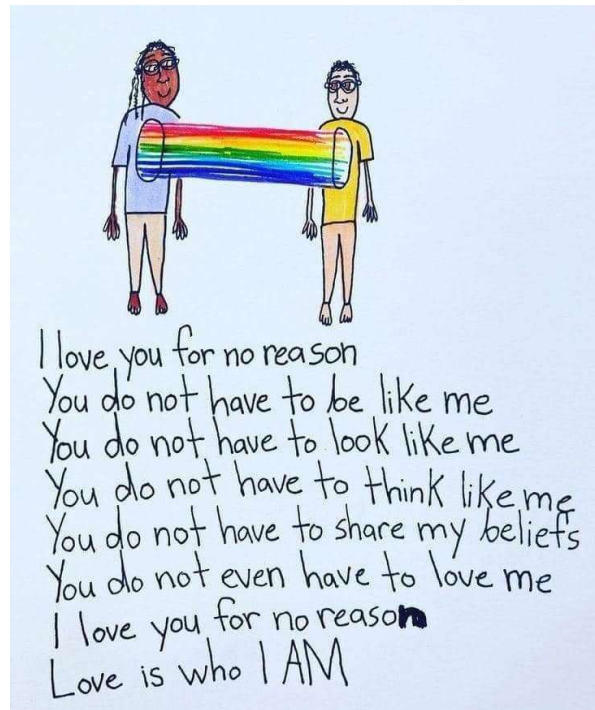 I love you for no reason
You do not have to be like me
You do not have to look like me
You do not have to think like me
You do not have to share my beliefs
You do not even have to love me
I love you for no reason
Love is who I AM